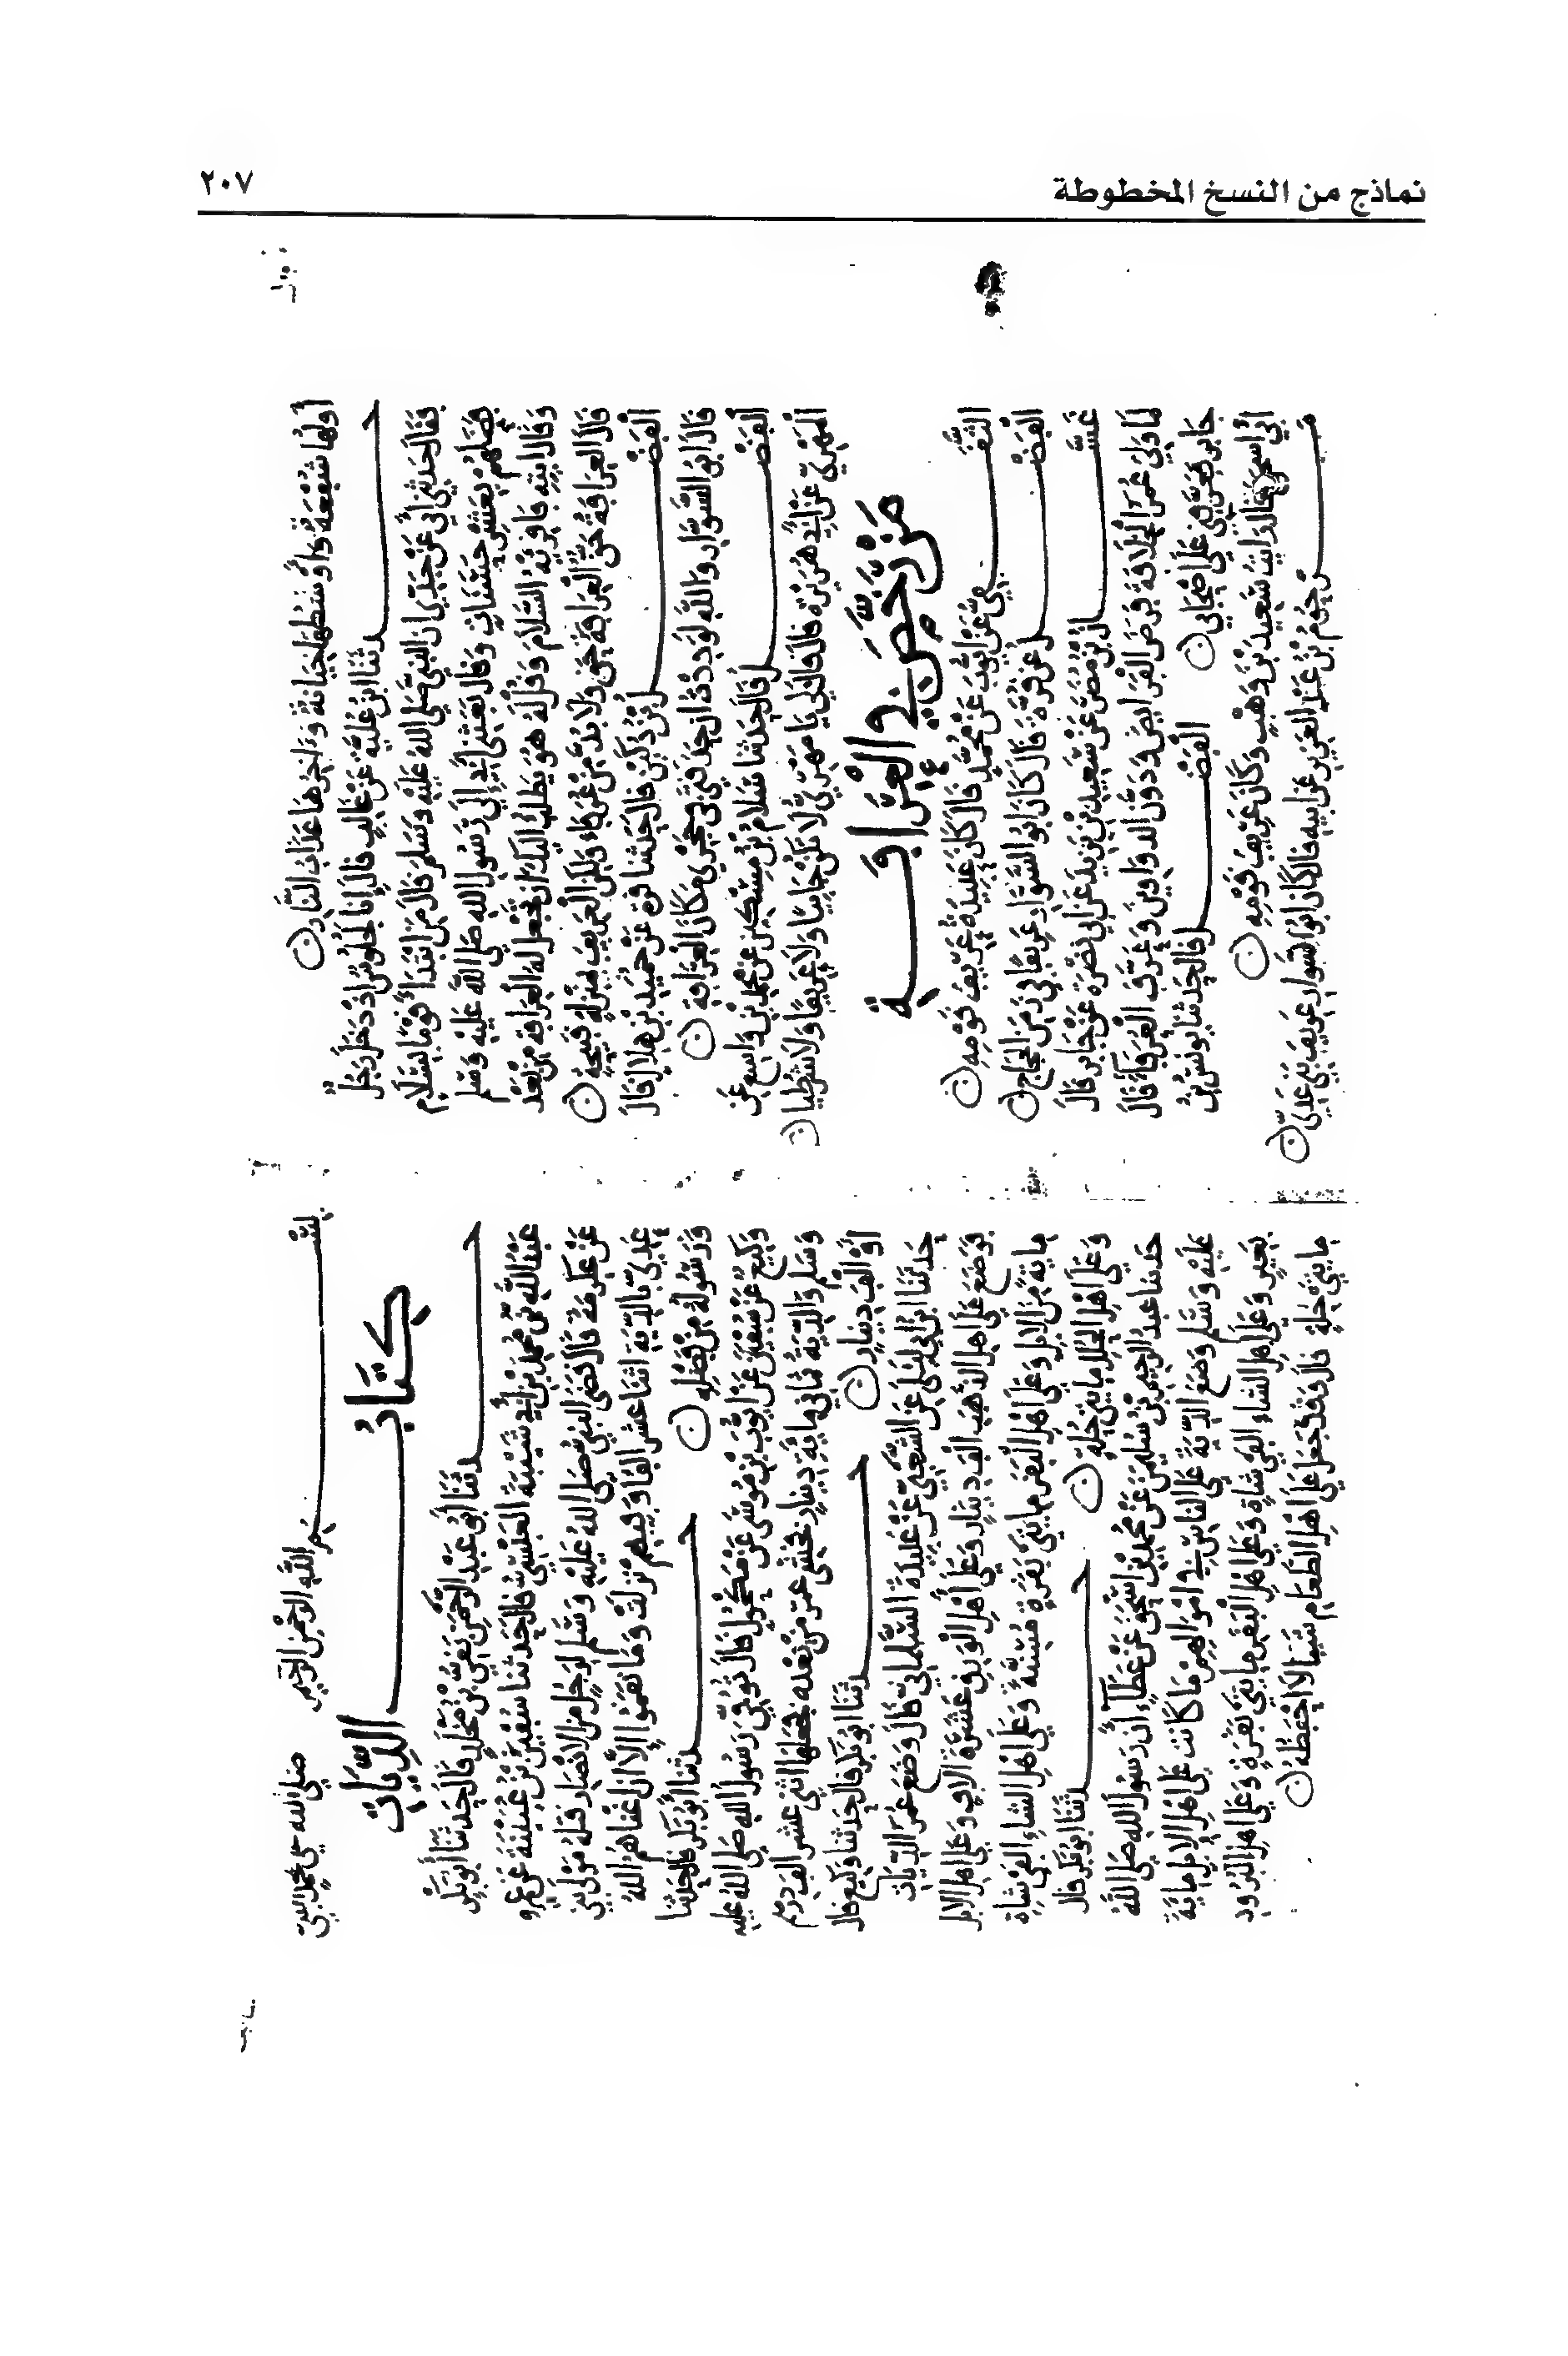 نماذج من النسخ المخطوطة
٢٠٧
أولها شفعة وأوسطها خيانة وءاخرها عذاب النار
حدثنا ابن علية عن غالب قال إنا لجلوس إذ دخل رجل
فقال حدثني أبي عن جدي ان النبي صلى الله عليه وسلم قال من ابتدأ قوما بسلام
فضلهم بعشر حسنات وقال بعثني أبي إلى رسول الله صلى الله عليه وسلم
وقال ايته فاقرئه السلام وقل له هو يطلب اليك ان تجعل له العرافة من بعد
قال العرافة حق العرافة حق ولا بد من عرفاء ولكن العريف بمنزلة قبيحة
الفضل بن دكين قال حدثنا قرة عن حميد بن هلال قال
قال ابو السوار والله لوددت ان حدقتي في حجري مكان العرافة
الفضل قال حدثنا سلام بن مسكين عن محمد بن واسع عن
المهري عن ابي هريرة قال قال لي يا مهري لا تكن جابيا ولا عريفا ولا شرطيا
من رخص في العرافة
الثقفي عن ايوب عن محمد قال كان عبيدة عريف قومه
الفضل عن قرة قال كان ابو السوار عريفا في زمن الحجاج
غسان بن مضر عن سعيد بن يزيد عن ابي نضرة عن جابر قال
لما ولي عمر الخلافة فرض الفرايض ودون الدواوين وعرف العرفاء قال
جابر فعرفني على اصحابي الفضل قال حدثنا يونس بن
أبي اسحق قال رايت سعيد بن وهب وكان عريف قومه
مرحوم بن عبد العزيز عن ابيه قال كان ابو السوار عريف بني عدي
بسم الله الرحمن الرحيم صلى الله على محمد النبي
كتاب الديات
حدثنا أبو عبد الرحمن بقي بن مخلد قال حدثنا أبو بكر
عبد الله بن محمد بن أبي شيبة العبسي قال حدثنا سفين بن عيينة عن عمرو
عن عكرمة قال قضى النبي صلى الله عليه وسلم لرجل من الانصار قتله مولى بني
عدي بالدية اثنا عشر الفا وفيهم نزلت وما نقموا إلا أن أغناهم الله
ورسوله من فضله حدثنا أبو بكر قال حدثنا
وكيع عن سفين عن ايوب بن موسى عن مكحول قال توفي رسول الله صلى الله عليه
وسلم والدية ثماني مائة دينار فخشي عمر من بعده فجعلها اثني عشر الف درهم
أو الف دينار حدثنا ابو بكر قال حدثنا وكيع قال
حدثنا ابن ابي ليلى عن الشعبي عن عبيدة السلماني قال وضع عمر الديات
فوضع على اهل الذهب الف دينار وعلى أهل الورق عشرة الاف وعلى اهل الابل
ماية من الابل وعلى أهل البقر مايتي بقرة مسنة وعلى اهل الشاء الفي شاة
وعلى أهل الحلل مايتي حلة حدثنا ابو بكر قال
حدثنا عبد الرحيم بن سليمن عن محمد بن اسحق عن عطاء أن رسول الله صلى الله
عليه وسلم وضع الدية على الناس في اموالهم ما كانت على اهل الابل ماية
بعير وعلى اهل الشاء الفي شاة وعلى اهل البقر مايتي بقرة وعلى اهل البرود
مايتي حلة قال وقد جعل على اهل الطعام شيئا لا احفظه